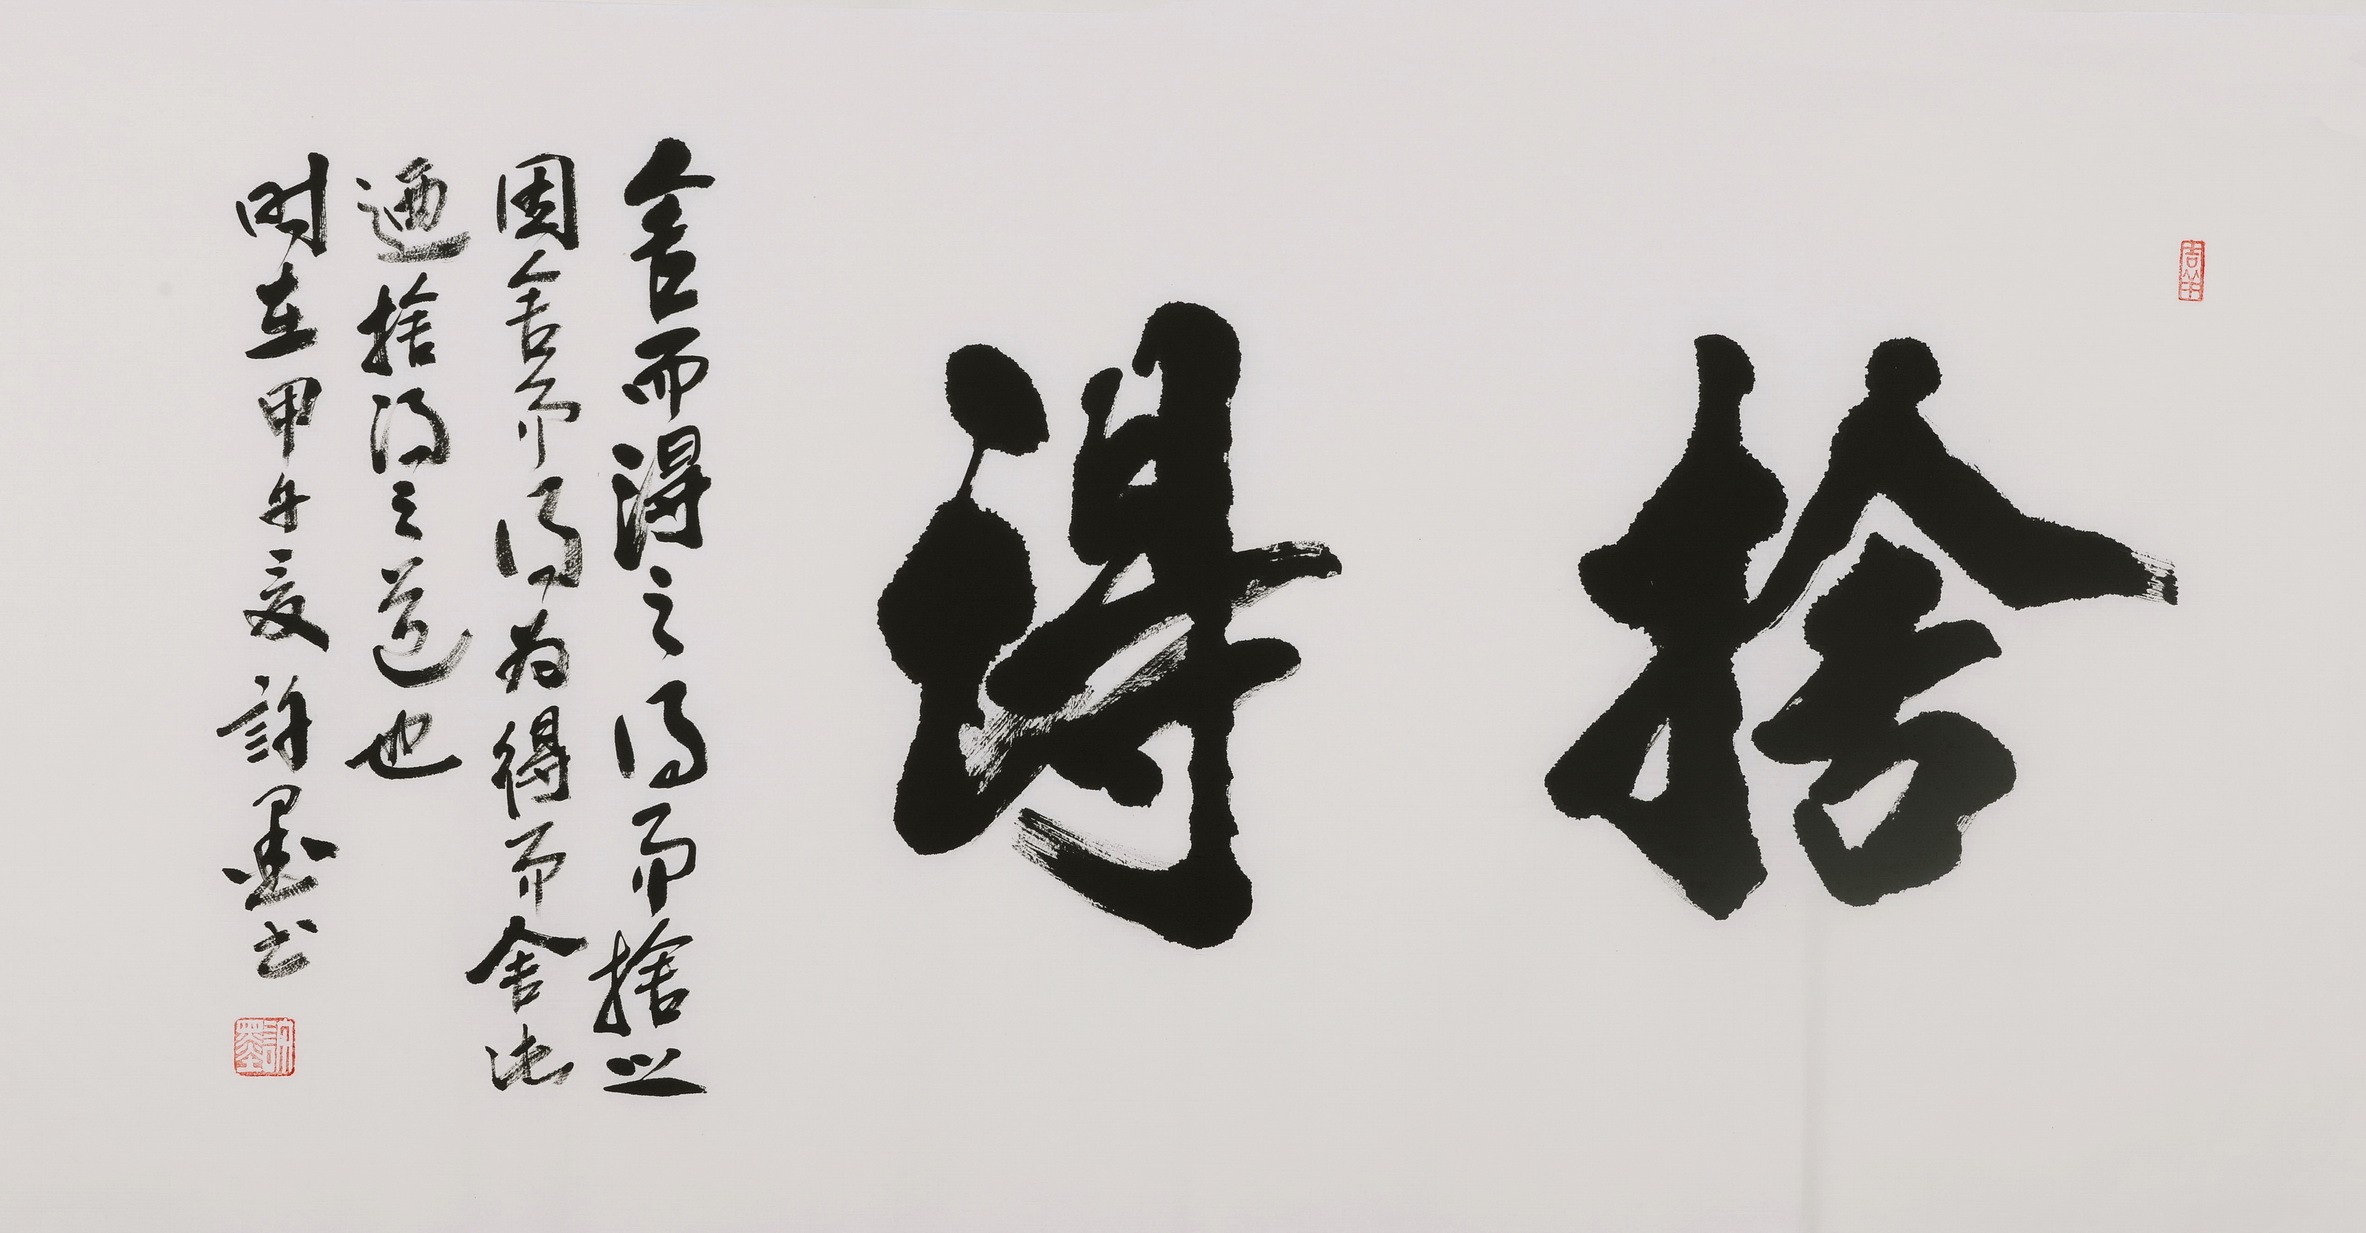 捨得
舍而得之得而捨之
因舍而得為得而舍此
迺捨得之道也
時在甲午夏許墨书
許墨